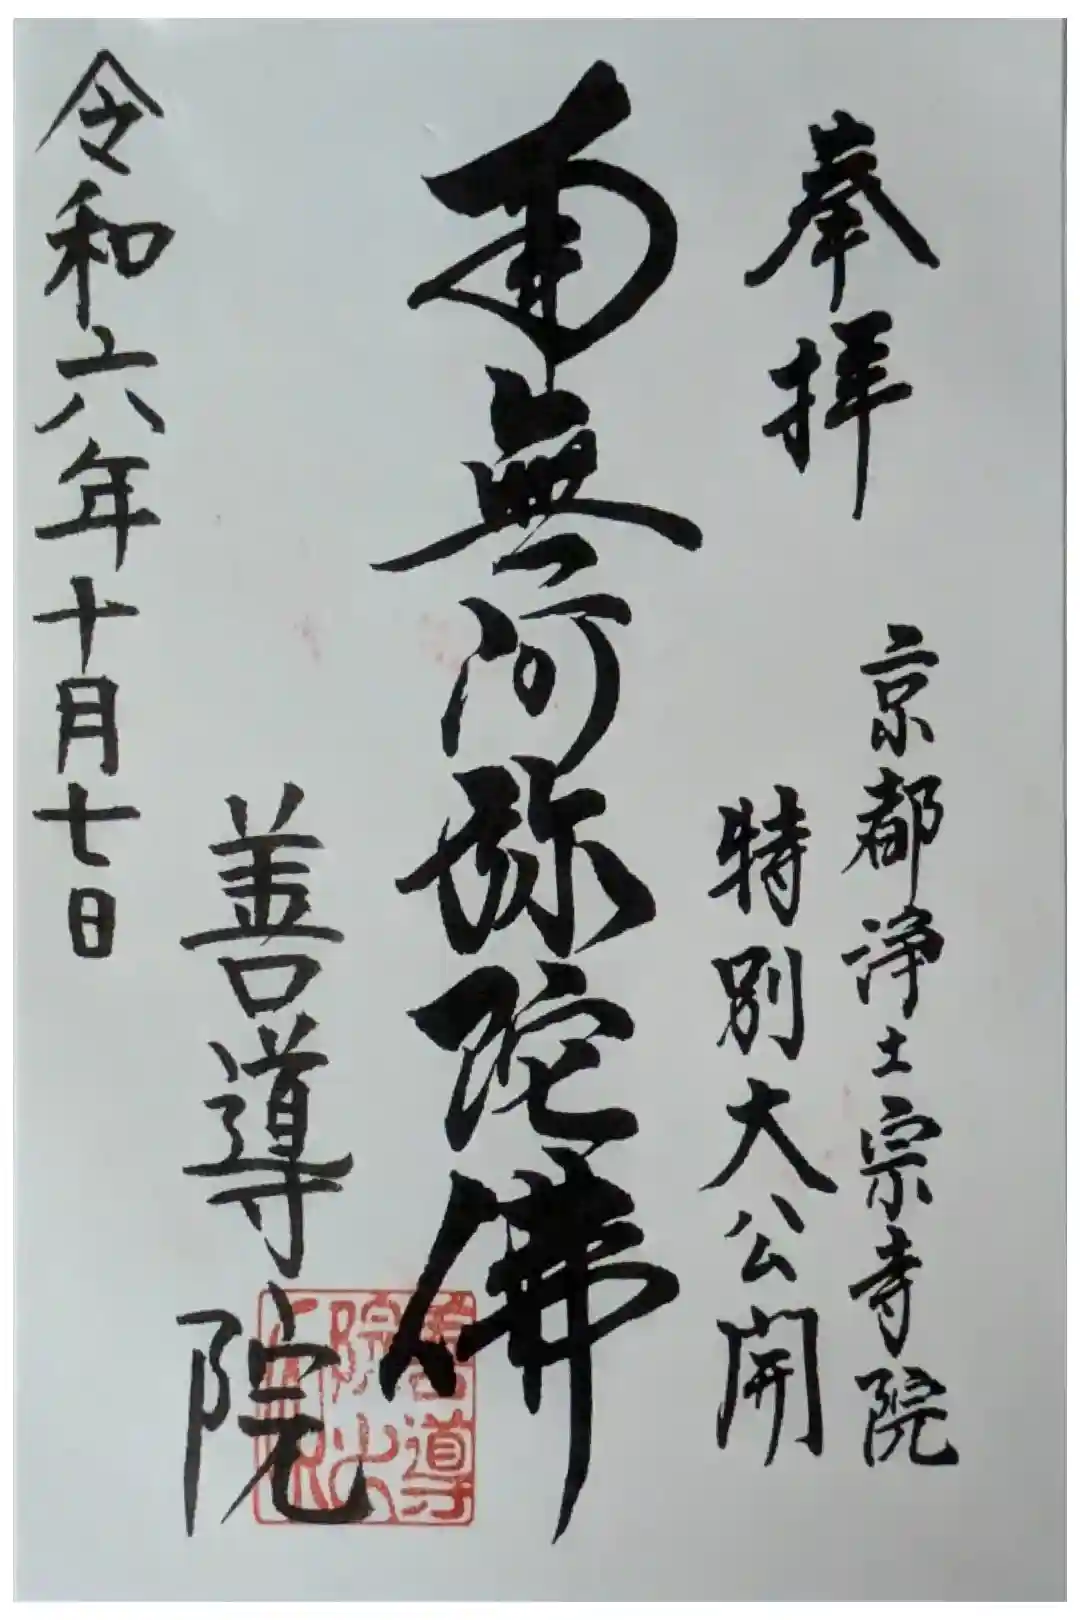 奉拝
京都浄土宗寺院
特別大公開
南無阿弥陀佛
善導院
令和六年十月七日
善導
院之
印